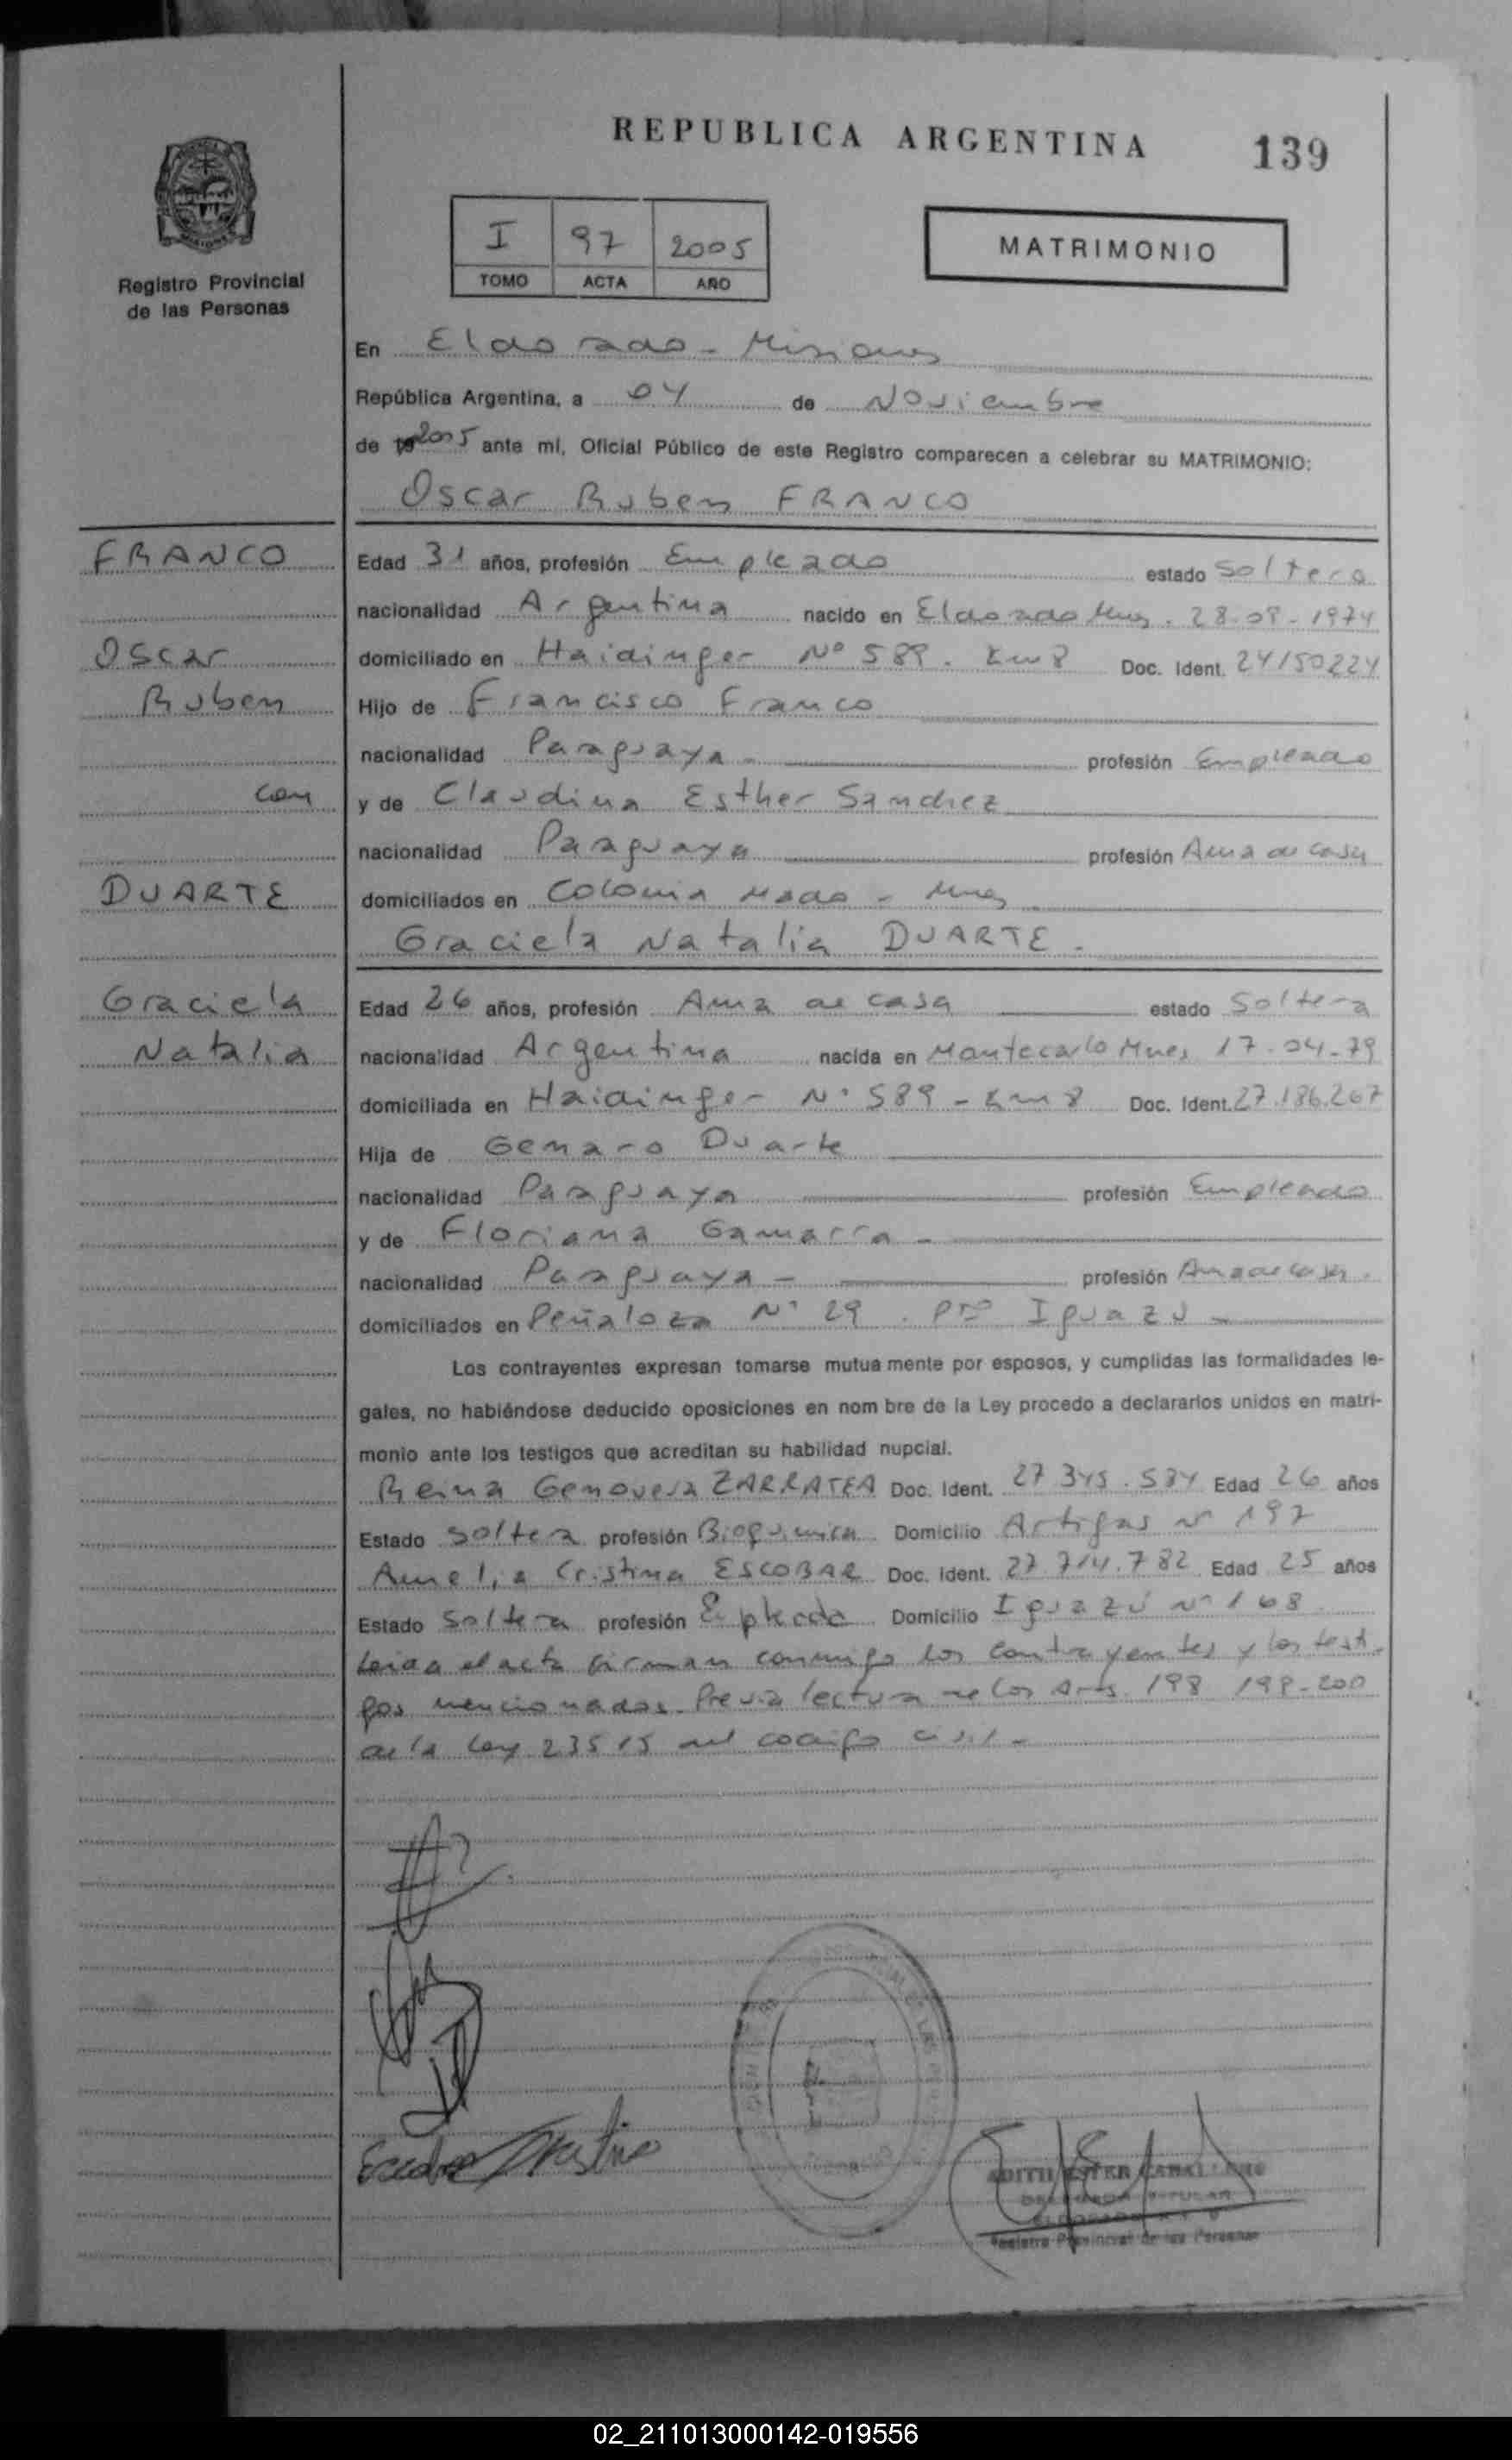 REPUBLICA ARGENTINA
139
Registro Provincial
de las Personas
I 97 2005
TOMO ACTA AÑO
MATRIMONIO
En Eldorado - Misiones
República Argentina, a 04 de Noviembre
de 2005 ante mí, Oficial Público de este Registro comparecen a celebrar su MATRIMONIO:
Oscar Ruben FRANCO
FRANCO
Oscar
Ruben
con
DUARTE
Graciela
Natalia
Edad 31 años, profesión Empleado estado Soltero
nacionalidad Argentina nacido en Eldorado Mnes. 28-09-1974
domiciliado en Haidinger Nº 589. Km 8 Doc. Ident. 24150224
Hijo de Francisco Franco
nacionalidad Paraguaya - profesión Empleado
y de Claudina Esther Sanchez
nacionalidad Paraguaya profesión Ama de casa
domiciliados en Colonia Mado - Mnes
Graciela Natalia DUARTE.
Edad 26 años, profesión Ama de casa estado Soltera
nacionalidad Argentina nacida en Montecarlo Mnes 17-04-79
domiciliada en Haidinger Nº 589 - Km 8 Doc. Ident. 27.186.267
Hija de Genaro Duarte
nacionalidad Paraguaya profesión Empleado
y de Floriana Gamarra -
nacionalidad Paraguaya - profesión Ama de casa.
domiciliados en Peñaloza Nº 29. Pto Iguazu -
Los contrayentes expresan tomarse mutua mente por esposos, y cumplidas las formalidades le-
gales, no habiéndose deducido oposiciones en nom bre de la Ley procedo a declararlos unidos en matri-
monio ante los testigos que acreditan su habilidad nupcial.
Reina Genovesa ZARRATEA Doc. Ident. 27 345.534 Edad 26 años
Estado Soltera profesión Bioquimica Domicilio Artigas Nº 197
Amelia Cristina ESCOBAR Doc. Ident. 27.714.782 Edad 25 años
Estado Soltera profesión Empleada Domicilio Iguazú Nº 168
Leida el acta firman conmigo los contrayentes y los testi-
gos mencionados. Previa lectura de los Arts. 198 199-200
de la Ley 23515 del codigo civil -
Registro Provincial de las Personas
02_211013000142-019556